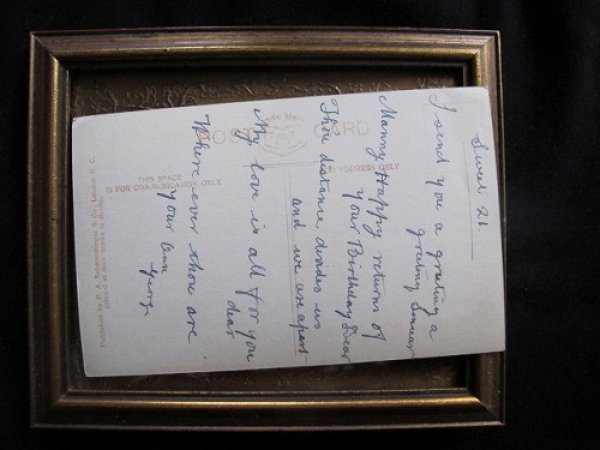 Sweet 21.
I send you a grating a
grating Sincear
Manny Happy returns of
your Birthday Dear
Thou distance devides us
and we are apart
My love is all for you
dear
Where ever thou are
your own
George
POST CARD
THIS SPACE
IS FOR COMMUNICATION ONLY
ADDRESS ONLY
Published by E. A. Schwerdtfeger & Co., London E. C.
Printed at their works in Berlin.